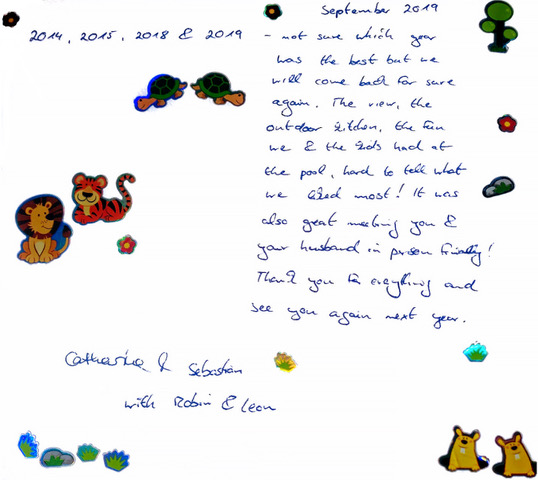 September 2019
2014, 2015, 2018 & 2019 - not sure which year
was the best but we
will come back for sure
again. The view, the
outdoor kitchen, the fun
we & the kids had at
the pool, hard to tell what
we liked most! It was
also great meeting you &
your husband in person finally!
Thank you for everything and
see you again next year.
Catharina & Sebastian
with Robin & Leon